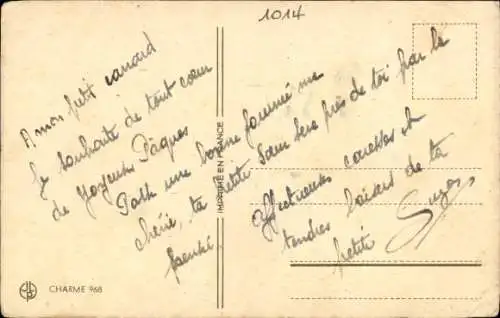 1014
A mon petit canard
Je souhaite de tout cœur
de Joyeuses Pâques
Path une bonne journée ma
chérie, ta petite Sœur sera près de toi par la
pensée.
Affectueuses caresses et
tendres baisers de ta
petite Suzon
IMPRIMÉ EN FRANCE
CHARME 968